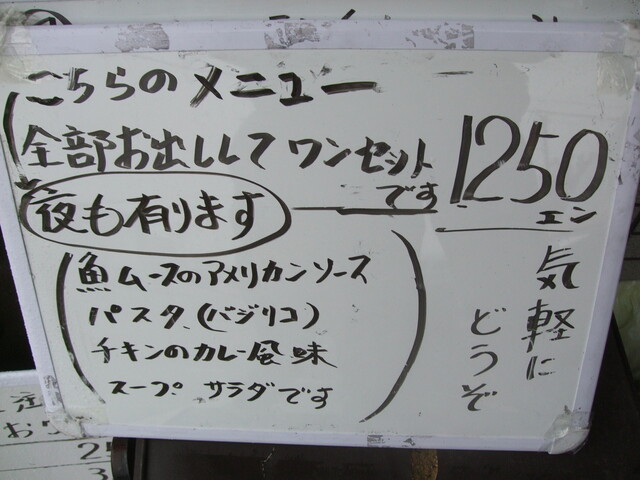 こちらのメニュー
全部お出しして ワンセットです
1250エン
夜も有ります
魚ムースのアメリカンソース
パスタ(バジリコ)
チキンのカレー風味
スープ サラダです
気軽に
どうぞ